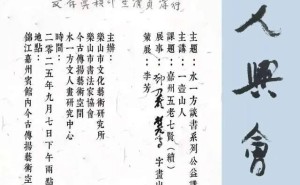 人興會
主題：水一方談書系列公益講
主講：一壺山人
課題：嘉州五老七賢（續）
展事： 字畫出
策展：李芳
主辦：
樂山市文化藝術研究所
樂山市書法家協會
今古傳揚藝術空間
水一方文人畫研究中心
時間：
二〇二五年九月七日下午兩點
地點：
錦江嘉州賓館內今古傳揚藝術空